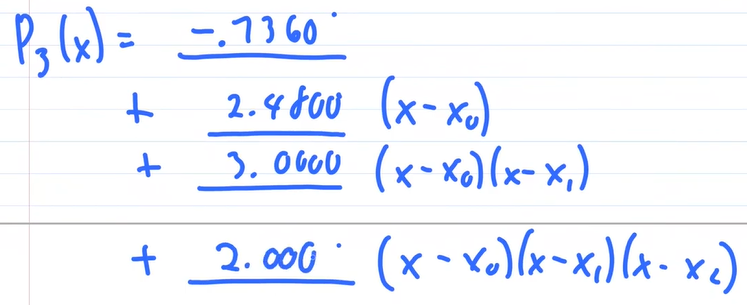 P₃(x) = -.7360
+ 2.4800 (x - x₀)
+ 3.0000 (x - x₀)(x - x₁)
+ 2.000 (x - x₀)(x - x₁)(x - x₂)